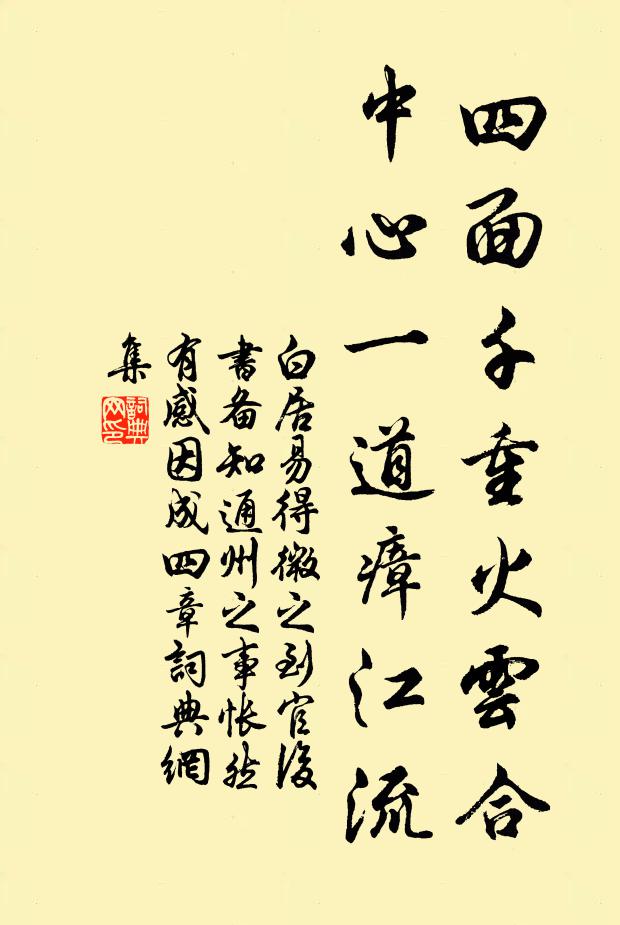 四面千重火雲合
中心一道瘴江流
白居易得微之到官後
書备知通州之事悵然
有感因成四章詞典網
集
詞典
网印